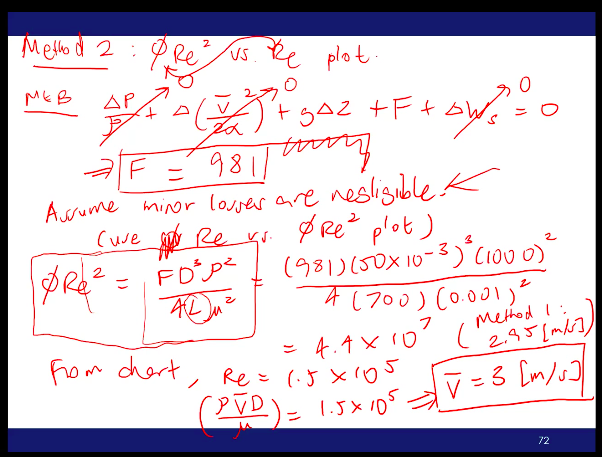 Method 2 : φRe² vs. Re plot.
MEB ΔP/ρ + Δ(V̄²/2α) + gΔZ + F + ΔWs = 0
0 0 0
⇒ F = 981
Assume minor losses are negligible.
(use Re vs. φRe² plot)
φRe² = FD³ρ²/4Lμ² = (981)(50×10⁻³)³(1000)²/4(700)(0.001)²
= 4.4 × 10⁷ (Method 1: 2.95 [m/s])
From chart, Re = 1.5 × 10⁵
(ρV̄D/μ) = 1.5×10⁵ ⇒ V̄ = 3 [m/s]
72